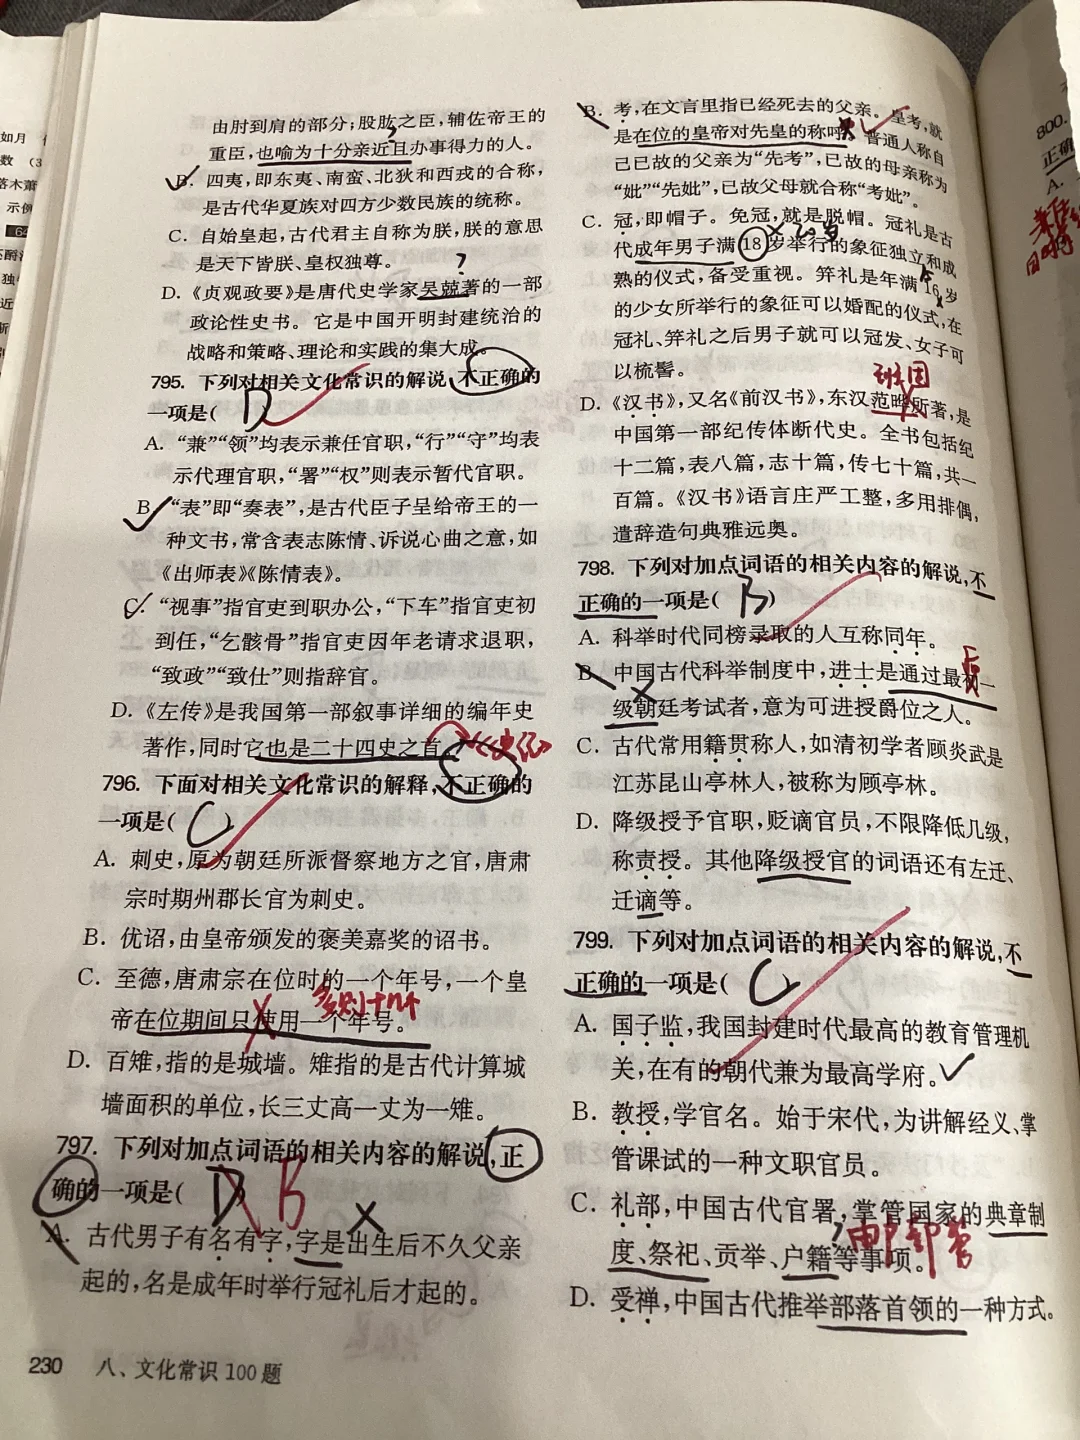 由肘到肩的部分;股肱之臣,辅佐帝王的
重臣,也喻为十分亲近且办事得力的人。
B. 四夷,即东夷、南蛮、北狄和西戎的合称,
是古代华夏族对四方少数民族的统称。
C. 自始皇起,古代君主自称为朕,朕的意思
是天下皆朕、皇权独尊。
?
D.《贞观政要》是唐代史学家吴兢著的一部
政论性史书。它是中国开明封建统治的
战略和策略、理论和实践的集大成。
795. 下列对相关文化常识的解说,不正确的
一项是( D )
A. “兼”“领”均表示兼任官职,“行”“守”均表
示代理官职,“署”“权”则表示暂代官职。
B. “表”即“奏表”,是古代臣子呈给帝王的一
种文书,常含表志陈情、诉说心曲之意,如
《出师表》《陈情表》。
C. “视事”指官吏到职办公,“下车”指官吏初
到任,“乞骸骨”指官吏因年老请求退职,
“致政”“致仕”则指辞官。
D.《左传》是我国第一部叙事详细的编年史
著作,同时它也是二十四史之首。
《史记》
796. 下面对相关文化常识的解释,不正确的
一项是( C )
A. 刺史,原为朝廷所派督察地方之官,唐肃
宗时期州郡长官为刺史。
B. 优诏,由皇帝颁发的褒美嘉奖的诏书。
C. 至德,唐肃宗在位时的一个年号,一个皇
帝在位期间只使用一个年号。
多则十几个
D. 百雉,指的是城墙。雉指的是古代计算城
墙面积的单位,长三丈高一丈为一雉。
797. 下列对加点词语的相关内容的解说,正
确的一项是( D ) B
A. 古代男子有名有字,字是出生后不久父亲
起的,名是成年时举行冠礼后才起的。
230 八、文化常识100题
B. 考,在文言里指已经死去的父亲。皇考,就
是在位的皇帝对先皇的称呼。普通人称自
己已故的父亲为“先考”,已故的母亲称为
“妣”“先妣”,已故父母就合称“考妣”。
C. 冠,即帽子。免冠,就是脱帽。冠礼是古
20岁
代成年男子满18岁举行的象征独立和成
熟的仪式,备受重视。笄礼是年满16岁
的少女所举行的象征可以婚配的仪式,在
冠礼、笄礼之后男子就可以冠发、女子可
以梳髻。
班固
D.《汉书》,又名《前汉书》,东汉范晔所著,是
中国第一部纪传体断代史。全书包括纪
十二篇,表八篇,志十篇,传七十篇,共一
百篇。《汉书》语言庄严工整,多用排偶,
遣辞造句典雅远奥。
798. 下列对加点词语的相关内容的解说,不
正确的一项是( B )
A. 科举时代同榜录取的人互称同年。
B. 中国古代科举制度中,进士是通过最初一
级朝廷考试者,意为可进授爵位之人。
C. 古代常用籍贯称人,如清初学者顾炎武是
江苏昆山亭林人,被称为顾亭林。
D. 降级授予官职,贬谪官员,不限降低几级,
称责授。其他降级授官的词语还有左迁、
迁谪等。
799. 下列对加点词语的相关内容的解说,不
正确的一项是( C )
A. 国子监,我国封建时代最高的教育管理机
关,在有的朝代兼为最高学府。
B. 教授,学官名。始于宋代,为讲解经义、掌
管课试的一种文职官员。
C. 礼部,中国古代官署,掌管国家的典章制
度、祭祀、贡举、户籍等事项。
由户部管
D. 受禅,中国古代推举部落首领的一种方式。
800.
正确
A.